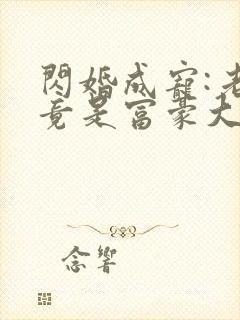 閃婚成寵:老
竟是富豪大
念響